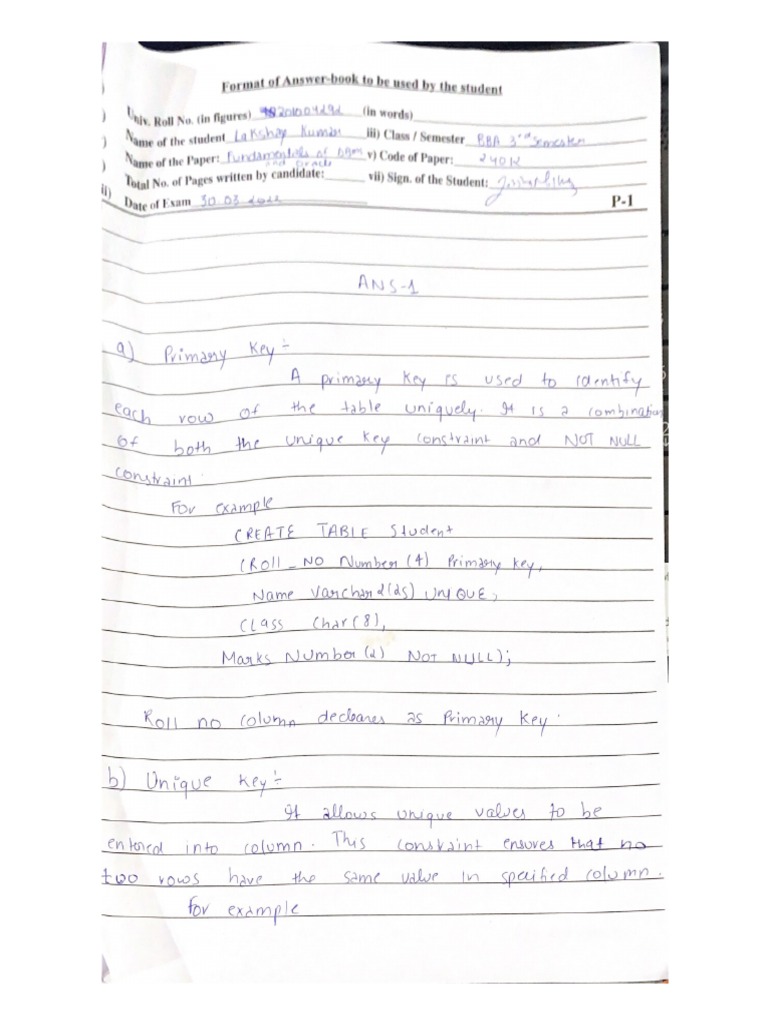 Format of Answer-book to be used by the student
Univ. Roll No. (in figures) (in words)
Name of the student Lakshay Kumar iii) Class / Semester BBA 3rd Semester
Name of the Paper: Fundamentals of DBMS v) Code of Paper: 240R
and Oracle
Total No. of Pages written by candidate: vii) Sign. of the Student:
ii) Date of Exam 30.03
P-1
ANS-1
a) Primary Key :-
A primary key is used to identify
each row of the table uniquely. It is a combination
of both the unique key constraint and NOT NULL
constraint.
For example
CREATE TABLE Student
(Roll_NO Number (4) Primary key,
Name Varchar2(25) UNIQUE,
CLASS Char(8),
Marks NUMBER(2) NOT NULL);
Roll no column declares as Primary Key.
b) Unique Key :-
It allows unique values to be
entered into column. This constraint ensures that no
two rows have the same value in specified column.
For example